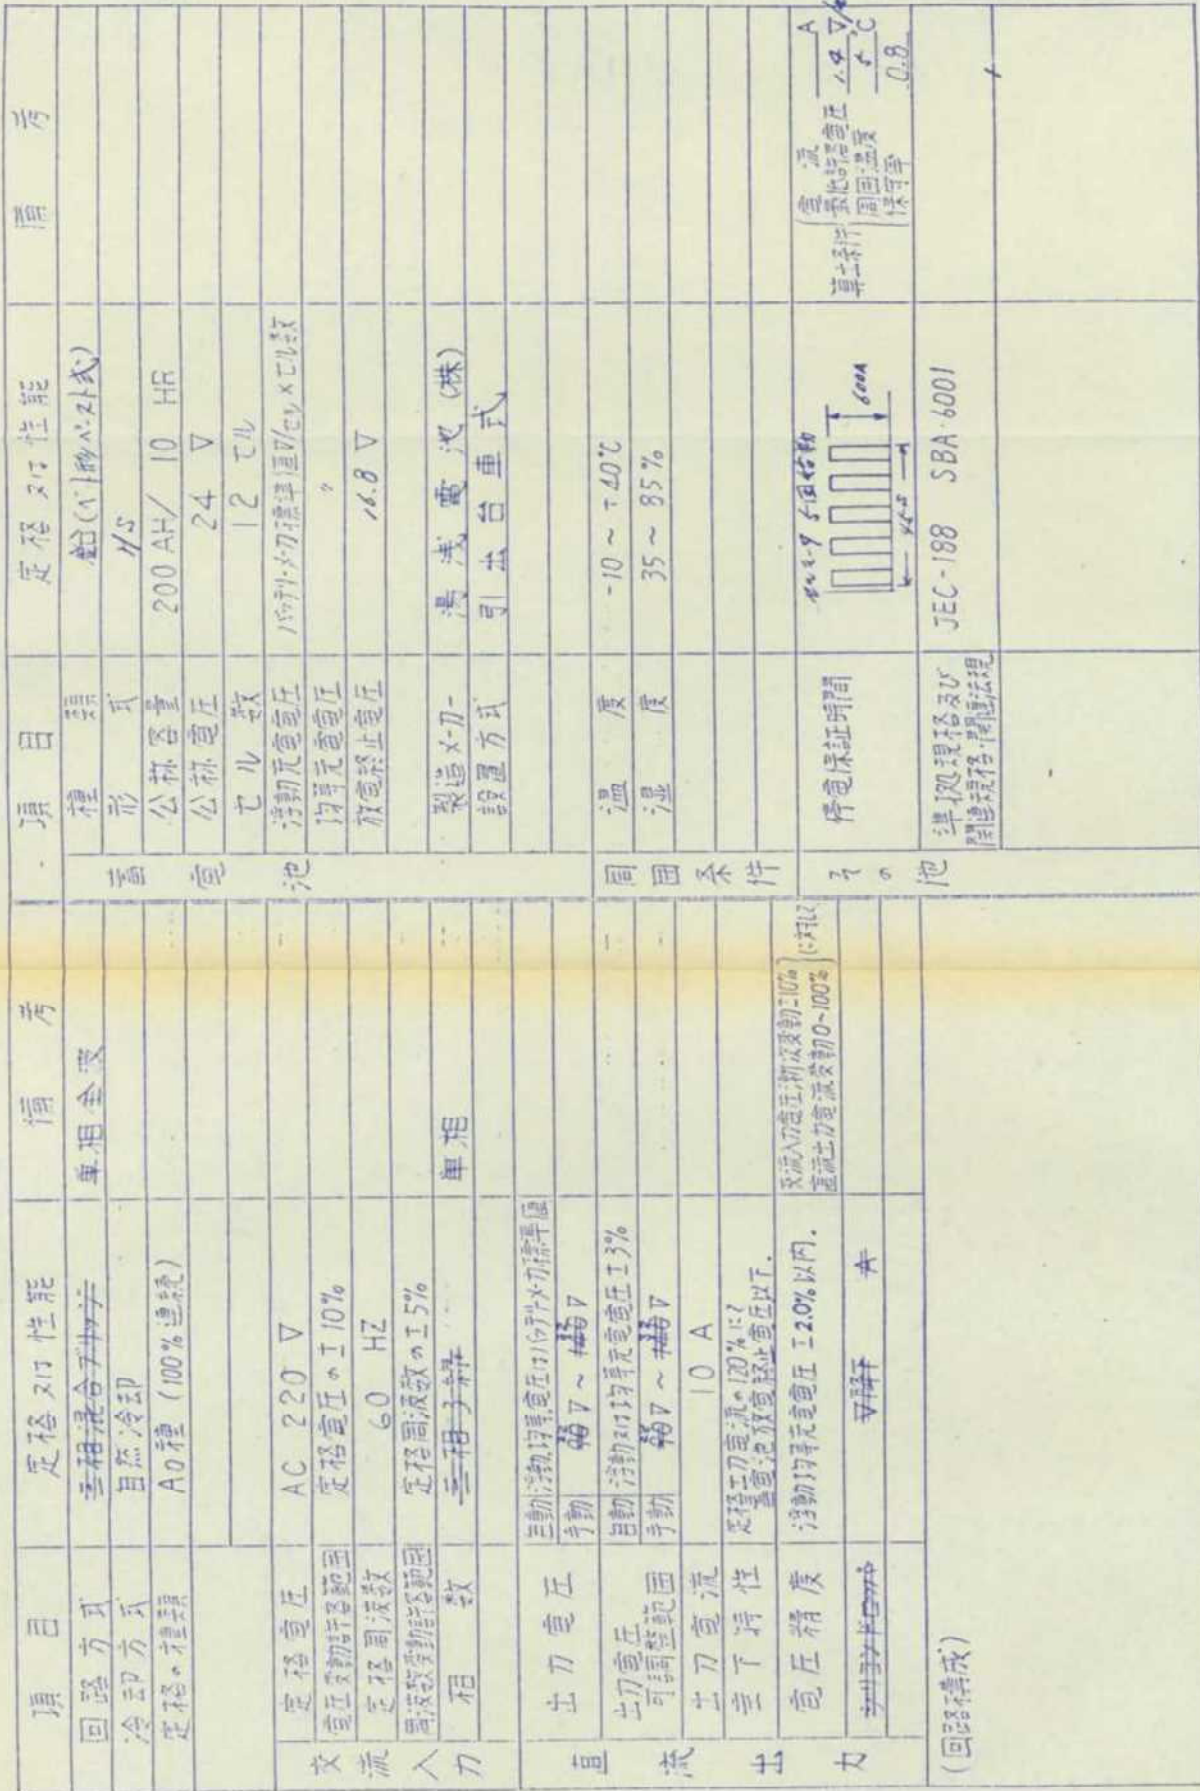 項目 定格又は性能 備考
回路方式 三相混合ブリッジ 単相全波
冷却方式 自然冷却
定格の種類 A0種 (100%連続)
交流入力
定格電圧 AC 220 V
電圧変動許容範囲 定格電圧の±10%
定格周波数 60 HZ
周波数変動許容範囲 定格周波数の±5%
相数 三相3線 単相
直流出力
出力電圧 自動 浮動,均等電圧はバッテリメーカ標準値
手動 V ~ V
出力電圧可調整範囲 自動 浮動又は均等充電電圧±3%
手動 V ~ V
出力電流 10 A
垂下特性 定格出力電流の120%にて
蓄電池放電終止電圧以下.
電圧精度 浮動,均等充電電圧±2.0%以内.
交流入力電圧,周波変動±10%
直流出力電流変動0~100% に対して
(回路構成)
項目 定格又は性能 備考
蓄電池
種類 鉛(ペースト式)
形式 HS
公称容量 200 AH/ 10 HR
公称電圧 24 V
セル数 12 セル
浮動充電電圧 バッテリーメーカ標準値V/セル×セル数
均等充電電圧 〃
放電終止電圧 16.8 V
製造メーカー 湯浅電池(株)
設置方式 引出台車式
周囲条件
温度 -10 ~ +40℃
湿度 35 ~ 85%
その他
停電保証時間 5回 600A
算出条件
電流 A
最低許容電圧 1.4 V/セル
周囲温度 5 ℃
保守率 0.8
準拠規格及び
関連規格・関連法規
JEC-188 SBA-6001